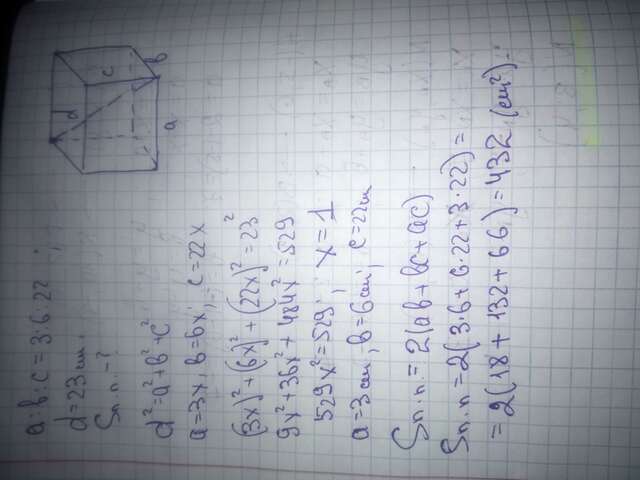 a:b:c = 3:6:22
d = 23 см,
Sп.п. - ?
d² = a² + b² + c²
a = 3x, b = 6x, c = 22x
(3x)² + (6x)² + (22x)² = 23²
9x² + 36x² + 484x² = 529
529x² = 529, x = 1
a = 3 см, b = 6 см, c = 22 см
Sп.п. = 2(ab + bc + ac)
Sп.п = 2(3·6 + 6·22 + 3·22) =
= 2(18 + 132 + 66) = 432 (см²).
d
c
b
a